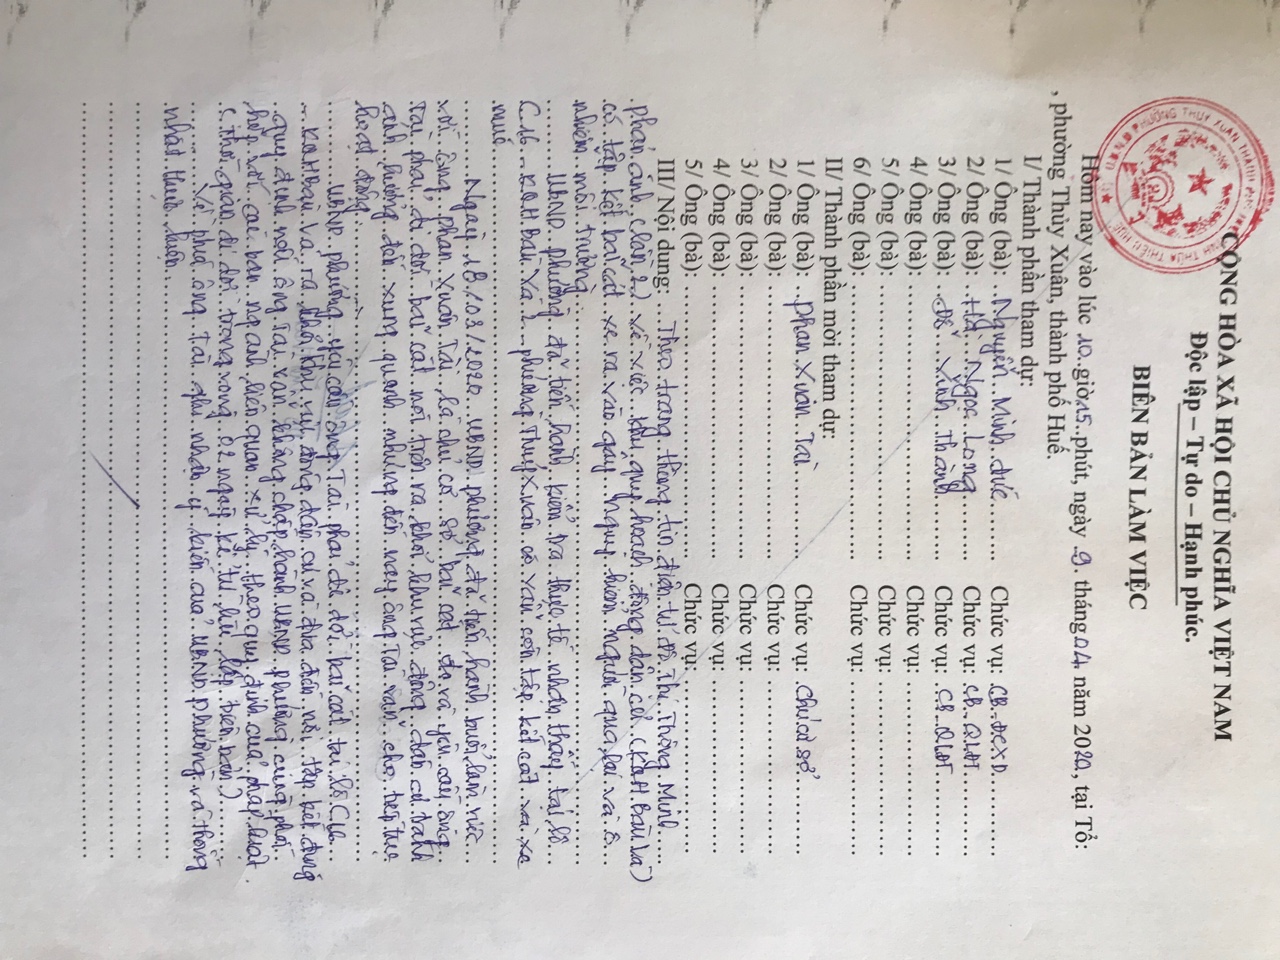 CỘNG HÒA XÃ HỘI CHỦ NGHĨA VIỆT NAM
Độc lập – Tự do – Hạnh phúc.
BIÊN BẢN LÀM VIỆC
Hôm nay vào lúc 10 giờ 15 phút, ngày 9 tháng 04 năm 2020, tại Tổ:
, phường Thủy Xuân, thành phố Huế
I/ Thành phần tham dự:
1/ Ông (bà): Nguyễn Minh Đức Chức vụ: CB. ĐCXD
2/ Ông (bà): Hồ Ngọc Long Chức vụ: CB. QLĐT
3/ Ông (bà): Đỗ Xinh Thành Chức vụ: CB. QLĐT
4/ Ông (bà): Chức vụ:
5/ Ông (bà): Chức vụ:
6/ Ông (bà): Chức vụ:
II/ Thành phần mời tham dự:
1/ Ông (bà): Phan Xuân Tài Chức vụ: Chủ cơ sở
2/ Ông (bà): Chức vụ:
3/ Ông (bà): Chức vụ:
4/ Ông (bà): Chức vụ:
5/ Ông (bà): Chức vụ:
III/ Nội dung: Theo trang thông tin điện tử đô thị thông minh
phản ánh (lần 2) về việc khu quy hoạch đông dân cư (KQH Bàu Vá)
có tập kết bãi cát xe ra vào gây nguy hiểm người qua lại và ô
nhiễm môi trường.
UBND phường đã tiến hành kiểm tra thực tế nhận thấy tại lô
C16 KQH Bàu Vá 2 phường Thủy Xuân có vẫn còn tập kết cát và xe
múc.
Ngày 18/03/2020 UBND phường đã tiến hành buổi làm việc
với ông Phan Xuân Tài là chủ cơ sở bãi cát đó và yêu cầu ông
Tài phải di dời bãi cát nói trên ra khỏi khu vực đông dân cư tránh
ảnh hưởng đến xung quanh nhưng đến nay ông Tài vẫn cho tiếp tục
hoạt động.
UBND phường yêu cầu ông Tài phải di dời bãi cát tại lô C16
KQH Bàu Vá ra khỏi khu vực đông dân cư và đưa đến nơi tập kết đúng
quy định nếu ông Tài vẫn không chấp hành UBND phường cùng phối
hợp với các ban ngành liên quan xử lý theo quy định của pháp luật.
(thời gian di dời trong vòng 02 ngày kể từ lúc lập biên bản)
Về phía ông Tài ghi nhận ý kiến của UBND phường và thống
nhất thực hiện.